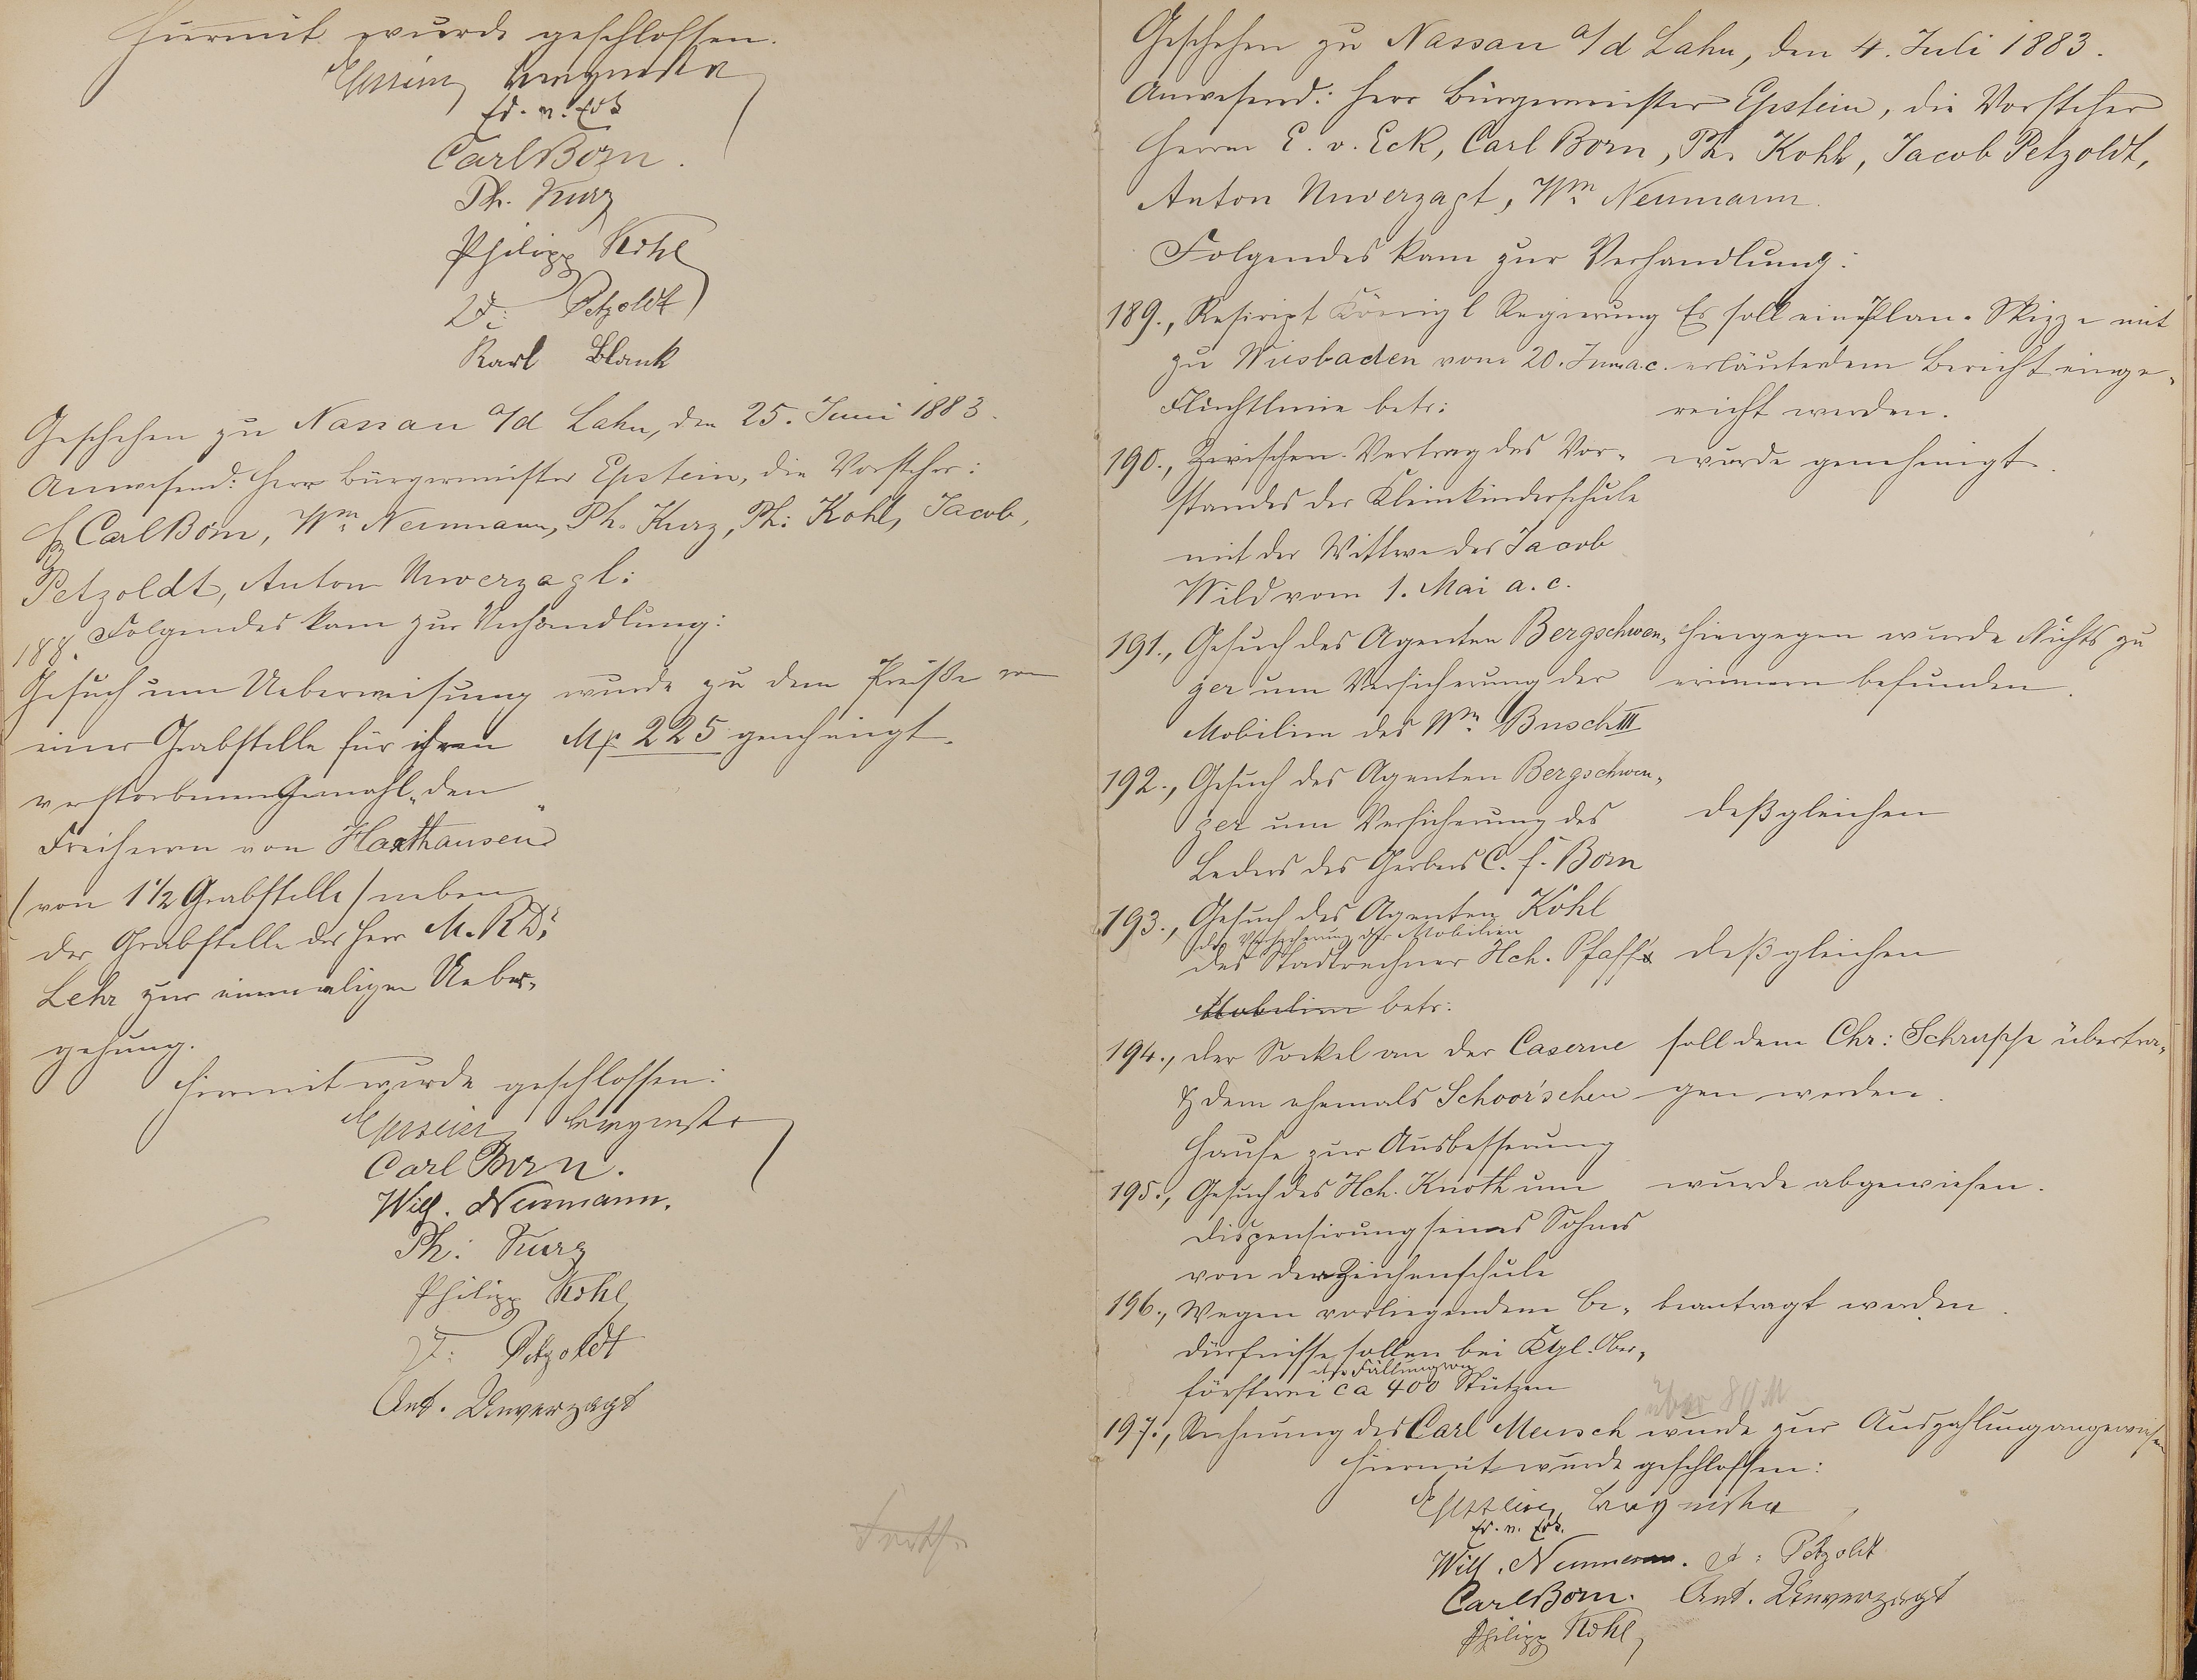 Hiermit wurde geschlossen.
Epstein Bürgermstr
Ed. v. Eck
Carl Born.
Ph. Kurz
Philipp Kohl
J: Petzoldt
Karl Blank
Geschehen zu Nassau a/d Lahn, den 25. Juni 1883.
Anwesend: Herr Bürgermeister Epstein, die Vorsteher:
H Carl Born, Wm. Neumann, Ph. Kurz, Ph: Kohl, Jacob
Petzoldt, Anton Unverzagt:
188. Folgendes kam zur Verhandlung:
Gesuch um Ueberweisung wurde zu dem Preiße von
einer Grabstelle für ihren Mk 225 genehmigt.
verstorbenen Gemahl, den
Freiherrn von Haxthausen
(von 1 1/2 Grabstelle) neben
der Grabstelle des Herr M. R. Dr.
Lehr zur einmaligen Ueber-
gehung.
Hiermit wurde geschlossen:
Epstein Bürgermstr
Carl Born.
Wilh. Neumann.
Ph: Kurz
Philipp Kohl
J: Petzoldt
Ant. Unverzagt
Geschehen zu Nassau a/d Lahn, den 4. Juli 1883.
Anwesend: Herr Bürgermeister Epstein, die Vorsteher
Herrn E. v. Eck, Carl Born, Ph. Kohl, Jacob Petzoldt,
Anton Unverzagt, Wm. Neumann.
Folgendes kam zur Verhandlung:
189., Rescript Königl Regierung Es soll eine Plan-Skizze mit
zu Wiesbaden vom 20. Juni a. c. erläuterdem Bericht einge-
Fluchtlinie betr: reicht werden.
190., Zwischen-Vertrag des Vor- wurde genehmigt.
standes der Kleinkinderschule
mit der Wittwe des Jacob
Wild vom 1. Mai a. c.
191., Gesuch des Agenten Bergschwen- Hiergegen wurde Nichts zu
ger um Versicherung der erinnern befunden.
Mobilien des Wm. Busch III
192., Gesuch des Agenten Bergschwen-
ger um Versicherung des deßgleichen
Leders des Gerbers C. H. Born
193., Gesuch des Agenten Kohl
die Versicherung der Mobilien
des Stadtrechner Hch. Pfaff deßgleichen
Mobilien betr:
194., Der Sockel an der Caserne soll dem Chr: Schrupp übertra-
& dem ehemals Schoor'schen gen werden.
Hause zur Ausbesserung
195., Gesuch des Hch. Knoth um wurde abgewiesen.
Dispensirung seines Sohnes
von der Zeichenschule
196., Wegen vorliegendem Be- beantragt werden.
dürfnisse sollen bei Kgl. Ober-
die Fällung von
försterei ca 400 Stützen
über 80 M
197., Rechnung des Carl Mensch wurde zur Auszahlung angewiesen
Hiermit wurde geschlossen:
Epstein Bürgermstr
Ed. v. Eck.
Wilh. Neumann. J: Petzoldt
Carl Born. Ant. Unverzagt
Philipp Kohl